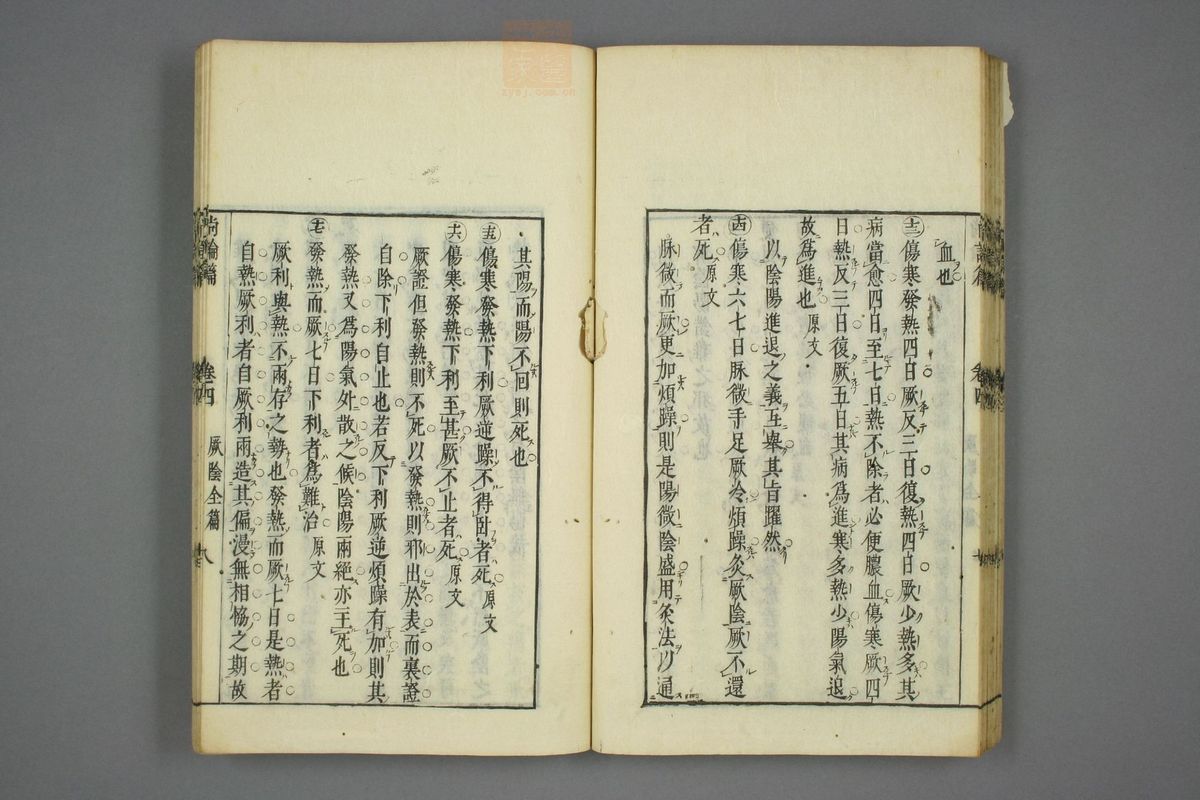 血也
㊂傷寒發熱四日厥反三日復熱四日厥少熱多其
病當愈四日至七日熱不除者必便膿血傷寒厥四
日熱反三日復厥五日其病爲進寒多熱少陽氣退
故爲進也 原文
以陰陽進退之義互舉其旨躍然
傷寒六七日脉微手足厥冷煩躁灸厥陰厥不還
者死 原文
脉微而厥更加煩躁則是陽微陰盛用灸法以通
其陽而陽不回則死也
傷寒發熱下利厥逆躁不得臥者死 原文
傷寒發熱下利至甚厥不止者死 原文
厥證但發熱則不死以發熱則邪出於表而裏證
自除下利自止也若反下利厥逆煩躁有加則其
發熱又爲陽氣外散之候陰陽兩絕亦主死也
發熱而厥七日下利者爲難治 原文
厥利與熱不兩存之勢也發熱而厥七日是熱者
自熱厥利者自厥利兩造其偏漫無相協之期故
尚論篇 卷四 厥陰全篇
zysj.com.cn